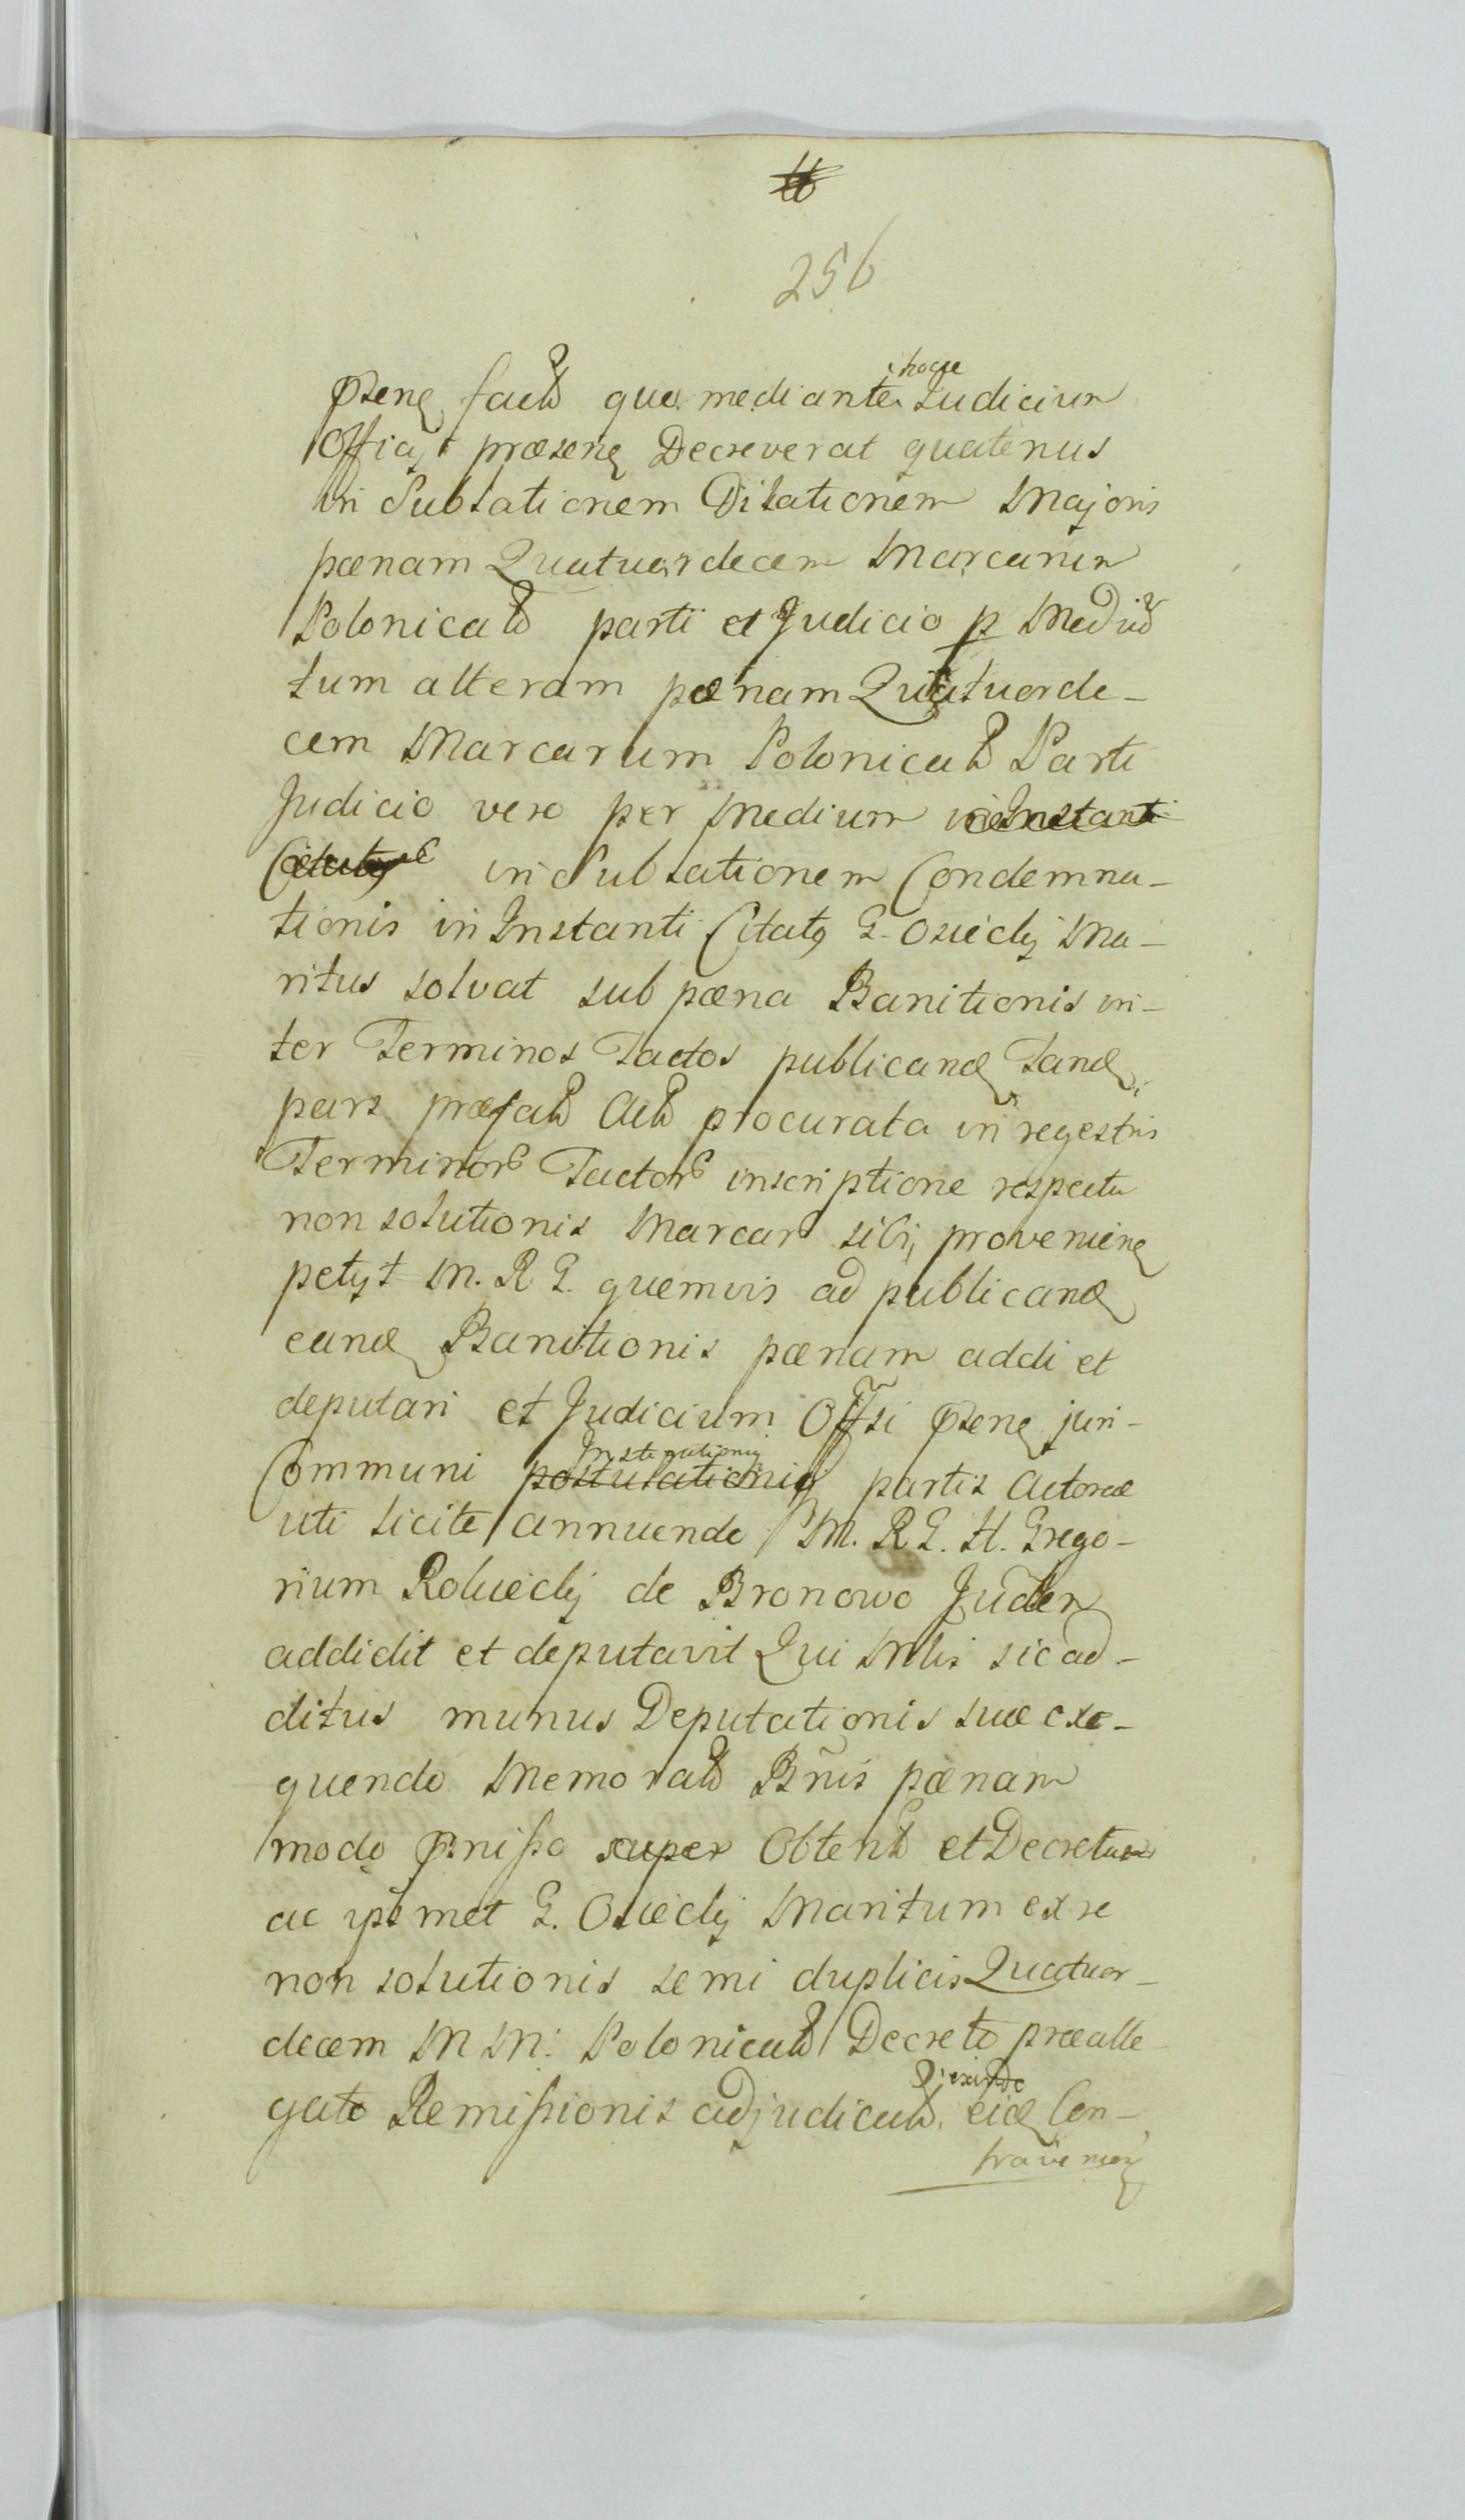 256
Pzene factū qua mediante hocce Judicium
Officÿ præsene Decreverat quatenus
in Sublationem Dilationem Majoris
pænam Quatuordecem Marcarum
Polonicalū parti et Judicio p Mediū
tum alteram pænam Quatuorde-
cem Marcarum Polonicalū Parti
Judicio vero per Medium in Instanti
in Sublationem Condemna-
tionis in Instanti Citatq G. Osiecky Ma-
ritus solvat sub pæna Banitionis in-
ter Terminos Tactos publicand Tand
pars præfatū Actū procurata in regestris
Terminorū Tactorū inscriptione respectu
non solutionis Marcarū sibi, proveniene
petyt M. R G. quemvis ad publicand
eand Banitionis pænam addi et
deputari et Judicium Offsi Pzene juri-
Instigationiq
Communi postulationiq partis Actoreæ
uti licite annuendo M. R G. H. Grego-
rium Rolieckj de Bronowo Judcem
addidit et deputavit Qui Mlis sic ad-
ditus munus Deputationis suæ exe-
quendo Memoratū Bnis pænam
modo Pmisso super Obtentū et Decretum
ac ipsmet G. Osiecky Maritum ex re
non solutionis semi duplicis Quatuor-
decem M M: Polonicalū Decreto prææalle-
exinde
gato Remissionis adjudicatū. eid Con-
travenien